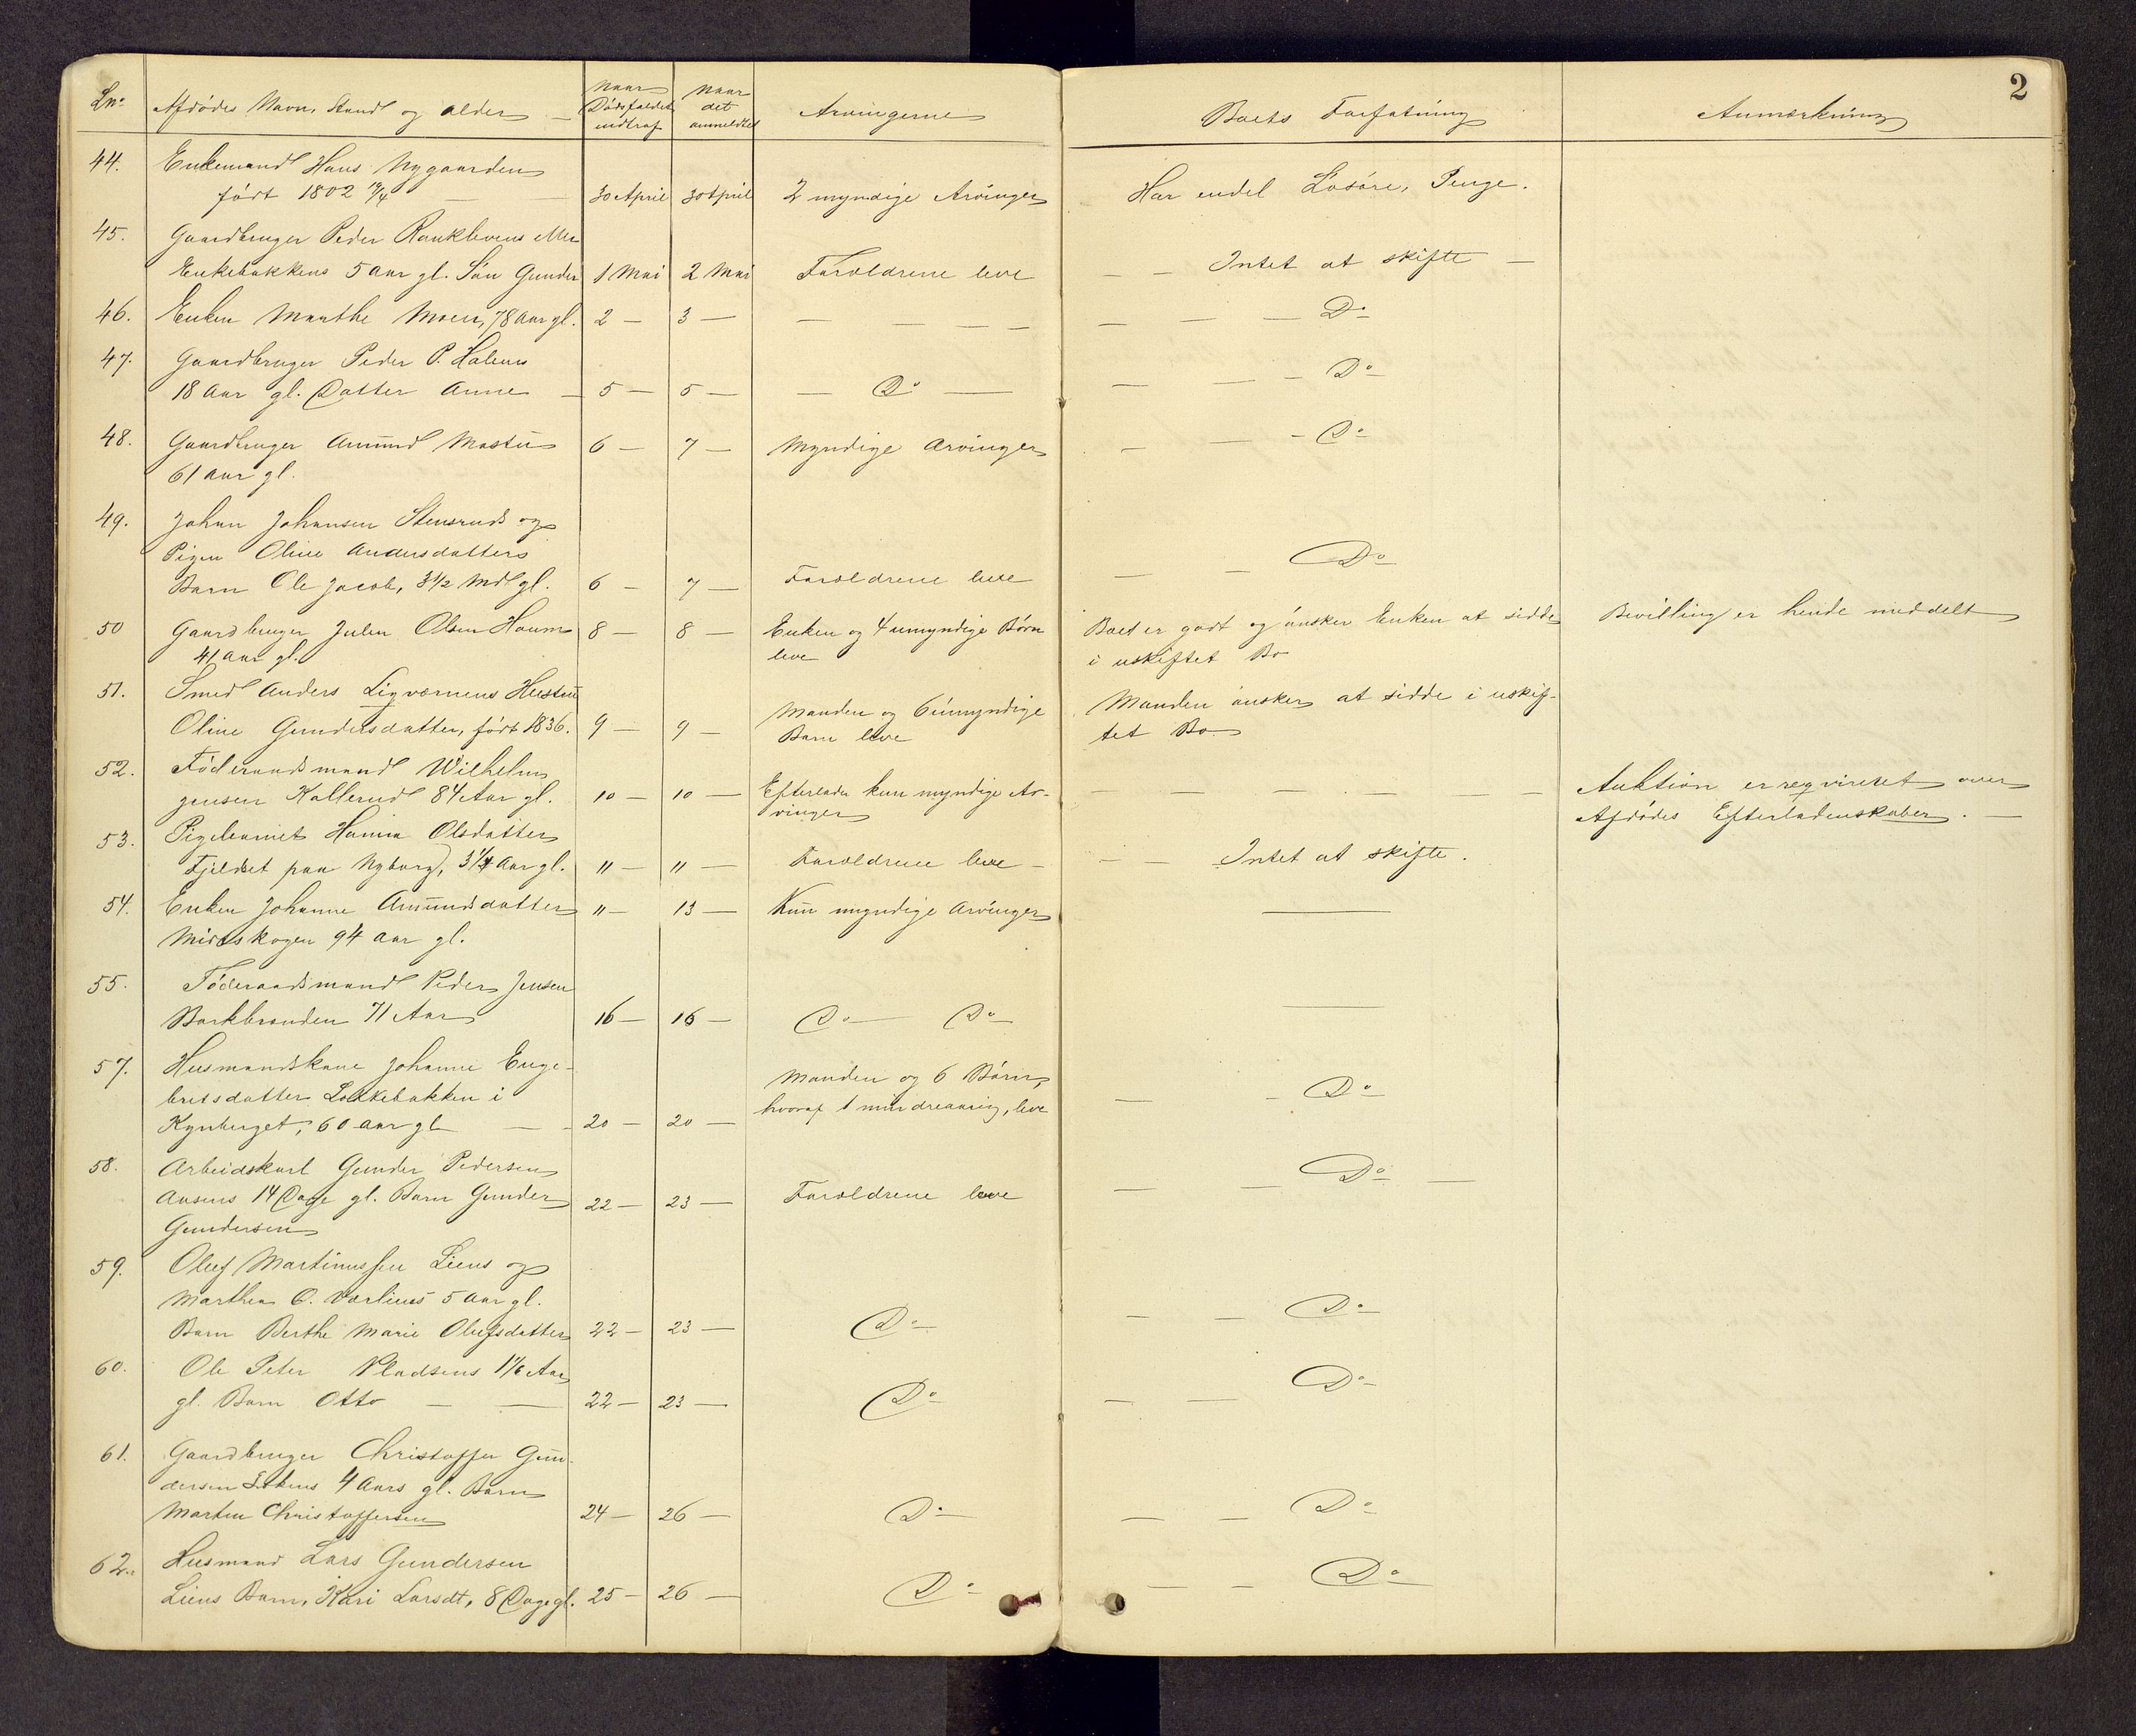 2
Lno Afdødes Navn, Stand og alder Naar Dødsfaldet indtraf Naar det anmeldtes Arvingerne Boets Forfatning Anmærkning
44. Enkemand Hans Nygaarden
født 1802 — — 30 April 30 April 2 myndige Arvinger Har endel Løsøre, Penge.
45. Gaardbruger Peder
Enkebakkens 5 aar gl. Søn Gunder 1 Mai 2 Mai Forældrene leve — — Intet at skifte —
46. Enken Marthe Moen, 78 Aar gl. 2 — 3 — — — — — — — — Do
47. Gaardbruger Peder P. Holens
18 Aar gl. Datter Anne — 5 — 5 — — Do — — — — Do
48. Gaardbruger Amund Mastu 6 — 7 — Myndige Arvinger — — — Do
61 aar gl.
49. Johan Johansen Stensruds og
Pigen Oline Andersdatters
Barn Ole Jacob, 3 1/2 Md gl. 6 — 7 — Forældrene leve — — Do
50 Gaardbruger Julen Olsen Haum 8 — 8 — Enken og 4 umyndige Børn Boet er godt og ønsker Enken at sidde Bevilling er hende meddelt
41 aar gl. leve i uskiftet Bo
51. Smed Anders Ligværnens Hustru
Oline Gundersdatter, født 1836. 9 — 9 — Manden og 6 umyndige Manden ønsker at sidde i uskif-
Barn leve tet Bo
52. Føderaadsmand Wilhelm
Jensen Kallerud 84 Aar gl. 10 — 10 — Efterlader kun myndige Ar- — — — — — — Auktion er reqvireret over
vinger Afdødes Efterladenskaber. —
53. Pigebarnet Hanna Olsdatter
Fjeldset paa Nyborg, 3 1/4 Aar gl. " — " — Forældrene leve — — — Intet at skifte.
54. Enken Johanne Amundsdatter " — 13 — Kun myndige Arvinger —
Midtskogen 94 aar gl.
55. Føderaadsmand Peder Jensen
Barkbranden 71 Aar 16 — 16 — Do — Do —
57. Husmandskone Johanne Enge-
bretsdatter Løkkebakken i Manden og 6 Børn, — — Do
Kynberget, 60 aar gl — — 20 — 20 — hvoraf 1 mindreaarig, leve
58. Arbeidskarl Gunder Pedersen
Aasens 14 Dage gl. Barn Gunder 22 — 23 — Forældrene leve — — Do —
Gundersen
59. Oluf Martinussen Liens og
Marthea O. Værliens 5 Aar gl.
Barn Berthe Marie Olufsdatter 22 — 23 — Do — — Do
60. Ole Peter Pladsens 1 1/6 Aar
gl. Barn Otto — — 22 — 23 — Do — — Do
61. Gaardbruger Christoffer Gun-
dersen 4 Aars gl. Barn
Martin Christoffersen 24 — 26 — Do — — Do
62. Husmand Lars Gundersen
Liens Barn, Kari Larsdt, 8 Dage gl. 25 — 26 — Do — — Do